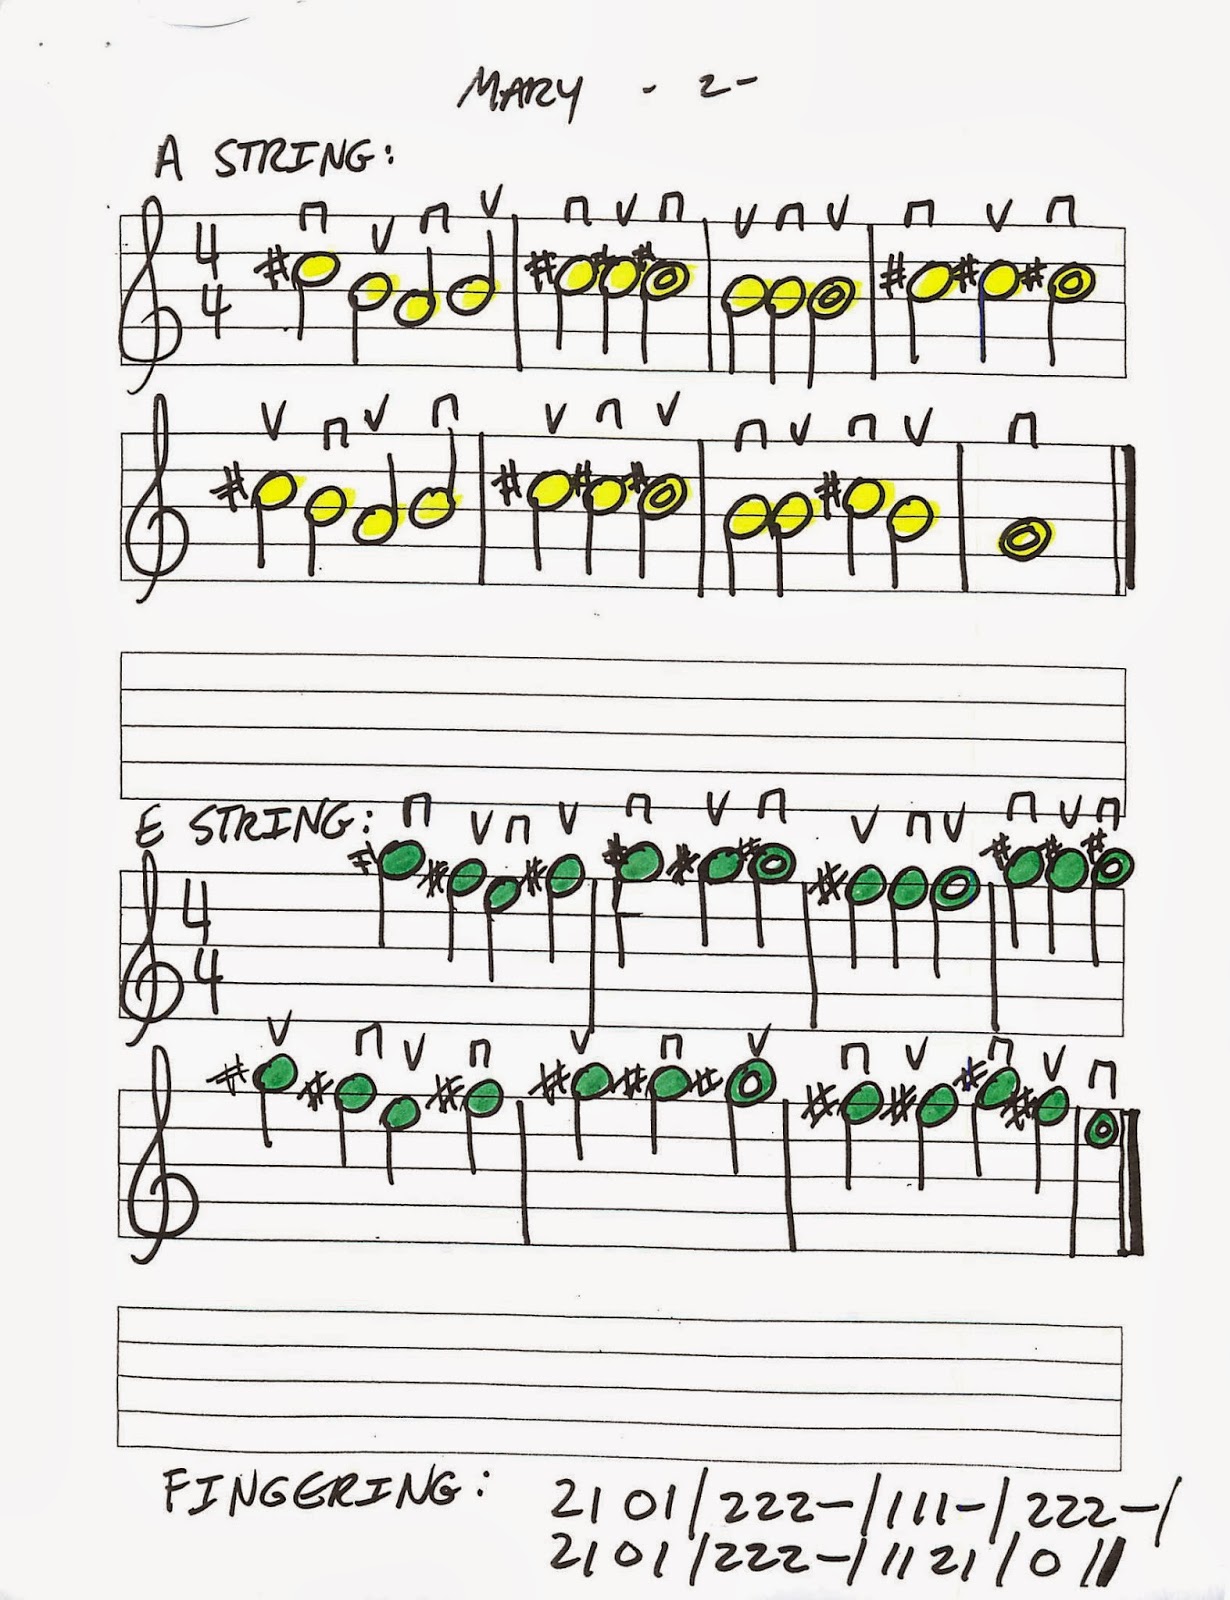 MARY - 2-
A STRING:
4
4
E STRING:
4
4
FINGERING: 2101/222-/111-/222-/
2101/222-/1121/0//